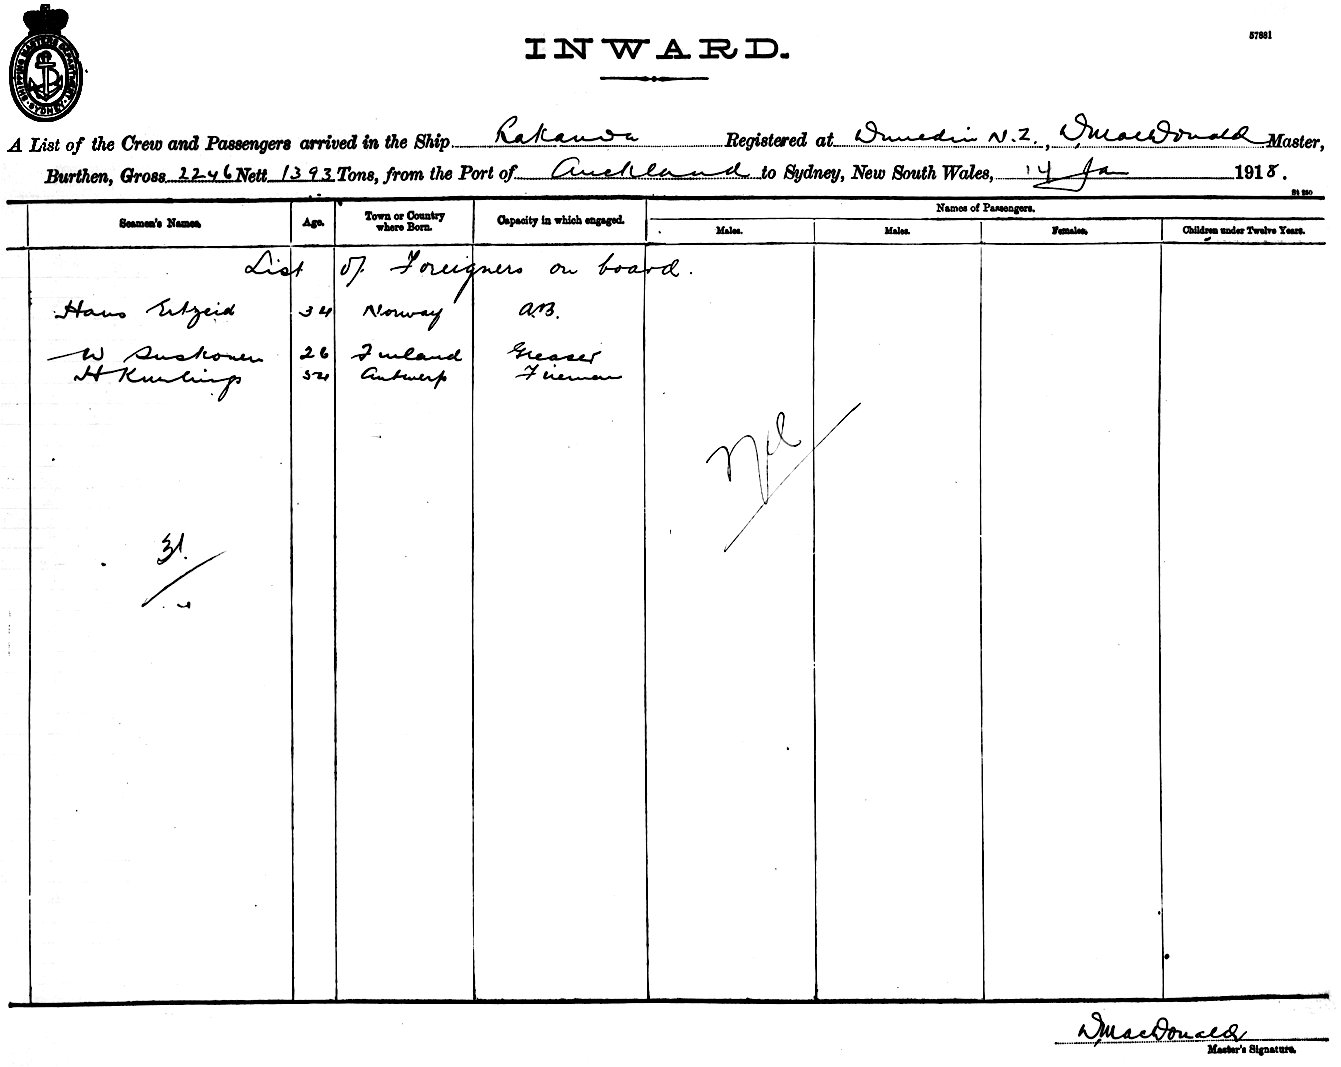 SHIPPING MASTERS DEPARTMENT SYDNEY
57881
INWARD.
A List of the Crew and Passengers arrived in the Ship Rakanoa Registered at Dunedin N.Z., D MacDonald Master,
Burthen, Gross 2246 Nett 1393 Tons, from the Port of Auckland to Sydney, New South Wales, 14 Jan 1918.
Seamen's Names. Age. Town or Country where Born. Capacity in which engaged. Names of Passengers.
Males. Males. Females. Children under Twelve Years.
List of Foreigners on board.
Hans 34 Norway A.B.
W 26 Finland Greaser
H Antwerp Fireman
Nil
31.
D MacDonald
Master's Signature.